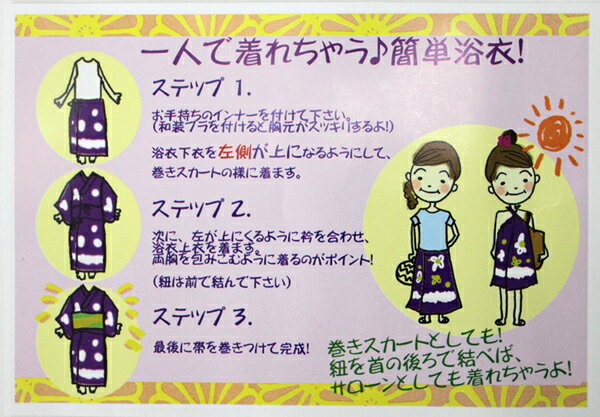 一人で着れちゃう♪簡単浴衣!
ステップ 1.
お手持ちのインナーを付けて下さい。
(和装ブラを付けると胸元がスッキリするよ!)
浴衣下衣を左側が上になるようにして、
巻きスカートの様に着ます。
ステップ 2.
次に、左が上にくるように衿を合わせ、
浴衣上衣を着ます。
両胸を包みこむように着るのがポイント!
(紐は前で結んで下さい)
ステップ 3.
最後に帯を巻きつけて完成!
巻きスカートとしても!
紐を首の後ろで結べば、
サローンとしても着れちゃうよ!